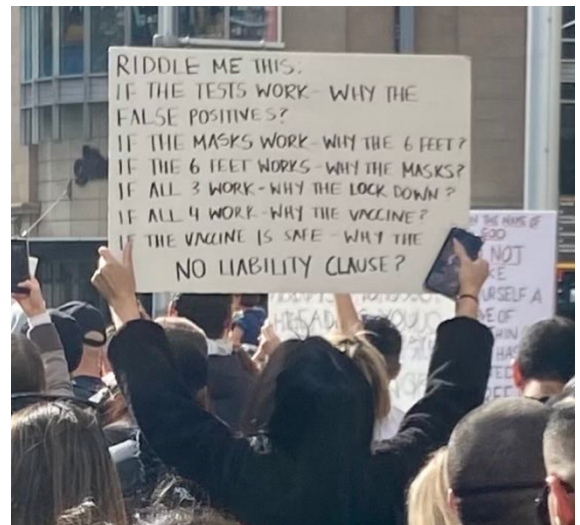 RIDDLE ME THIS:
IF THE TESTS WORK - WHY THE
FALSE POSITIVES?
IF THE MASKS WORK - WHY THE 6 FEET?
IF THE 6 FEET WORKS - WHY THE MASKS?
IF ALL 3 WORK - WHY THE LOCK DOWN?
IF ALL 4 WORK - WHY THE VACCINE?
IF THE VACCINE IS SAFE - WHY THE
NO LIABILITY CLAUSE?
IN THE NAME OF
GOD
NOT
URSELF A